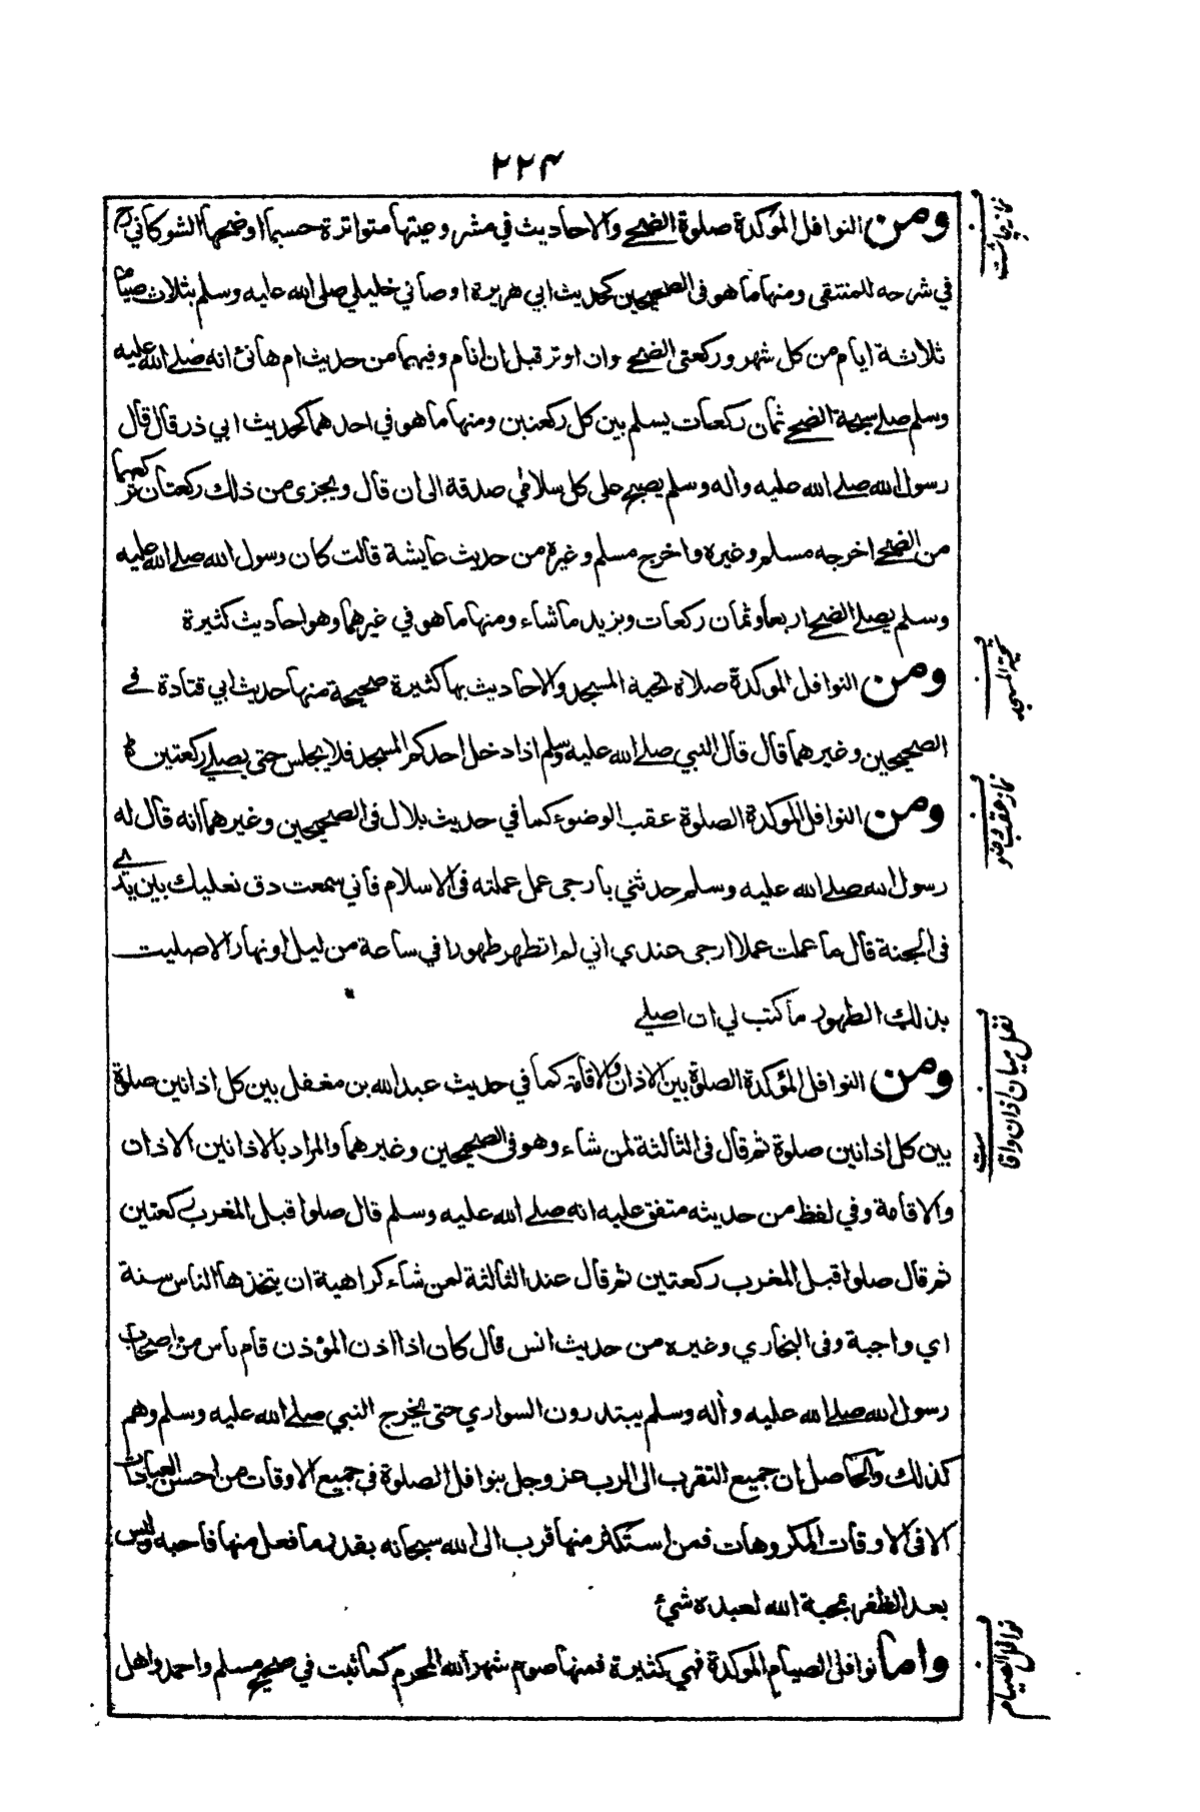 ۲۲۴
ومن النوافل المؤكدة صلوة الضحے والاحاديث في مشروعيتها متواترة حسبما اوضحها الشوكاني رح
في شرحه للمنتقى ومنها ما هو فى الصحيحين كحديث ابي هريرة اوصاني خليلي صلى الله عليه وسلم بثلاث صيام
ثلاثة ايام من كل شهر وركعتى الضحے وان اوتر قبل ان انام وفيهما من حديث ام هانئ انه صلے الله عليه
وسلم صلے سبحة الضحے ثمان ركعات يسلم بين كل ركعتين ومنها ما هو في احدهما كحديث ابي ذر قال قال
رسول الله صلے الله عليه وأله وسلم يصبح على كل سلامي صدقة الى ان قال ويجزى من ذلك ركعتان تركعهما
من الضحے اخرجه مسلم وغيره واخرج مسلم وغيره من حديث عايشة قالت كان رسول الله صلے الله عليه
وسلم يصلے الضحے اربعا وثمان ركعات ويزيد ما شاء ومنها ما هو في غيرهما وهو احاديث كثيرة
ومن النوافل الموكدة صلاة تحية المسجد والاحاديث بها كثيرة صحيحة منها حديث ابي قتادة فے
الصحيحين وغيرهما قال قال النبي صلے الله عليه وسلم اذا دخل احدكم المسجد فلا يجلس حتى يصلے ركعتين
ومن النوافل الموكدة الصلوة عقب الوضوء كما في حديث بلال فى الصحيحين وغيرهما انه قال له
رسول الله صلے الله عليه وسلم حدثني بارجى عمل عملته فى الاسلام فاني سمعت دق نعليك بين يدے
فى الجنة قال ما عملت عملا ارجى عندي اني لم اتطهر طهورا في ساعة من ليل او نهار الا صليت
بذلك الطهور ما كتب لي ان اصلے
ومن النوافل المؤكدة الصلوة بين الاذان والاقامة كما في حديث عبد الله بن مغفل بين كل اذانين صلوة
بين كل اذانين صلوة ثم قال فى الثالثة لمن شاء وهو فى الصحيحين وغيرهما والمراد بالاذانين الاذان
والاقامة وفي لفظ من حديثه متفق عليه انه صلے الله عليه وسلم قال صلوا قبل المغرب ركعتين
ثم قال صلوا قبل المغرب ركعتين ثم قال عند الثالثة لمن شاء كراهية ان يتخذها الناس سنة
اي واجبة وفى البخاري وغيره من حديث انس قال كان اذا اذن المؤذن قام ناس من اصحاب
رسول الله صلے الله عليه وأله وسلم يبتدرون السواري حتى يخرج النبي صلے الله عليه وسلم وهم
كذلك والحاصل ان جميع التقرب الى الرب عز وجل بنوافل الصلوة في جميع الاوقات من احسن العبادات
الا فى الاوقات المكروهات فمن استكثر منها قرب الى الله سبحانه بقدر ما فعل منها فاحبه وليس
بعد الظفر بمحبة الله لعبده شيئ
واما نوافل الصيام الموكدة فهي كثيرة فمنها صوم شهر الله المحرم كما ثبت في صحيح مسلم واحمد واهل
نماز چاشت
تحية المسجد
نماز عقب وضو
نفل میان اذان واقامت
نوافل الصيام